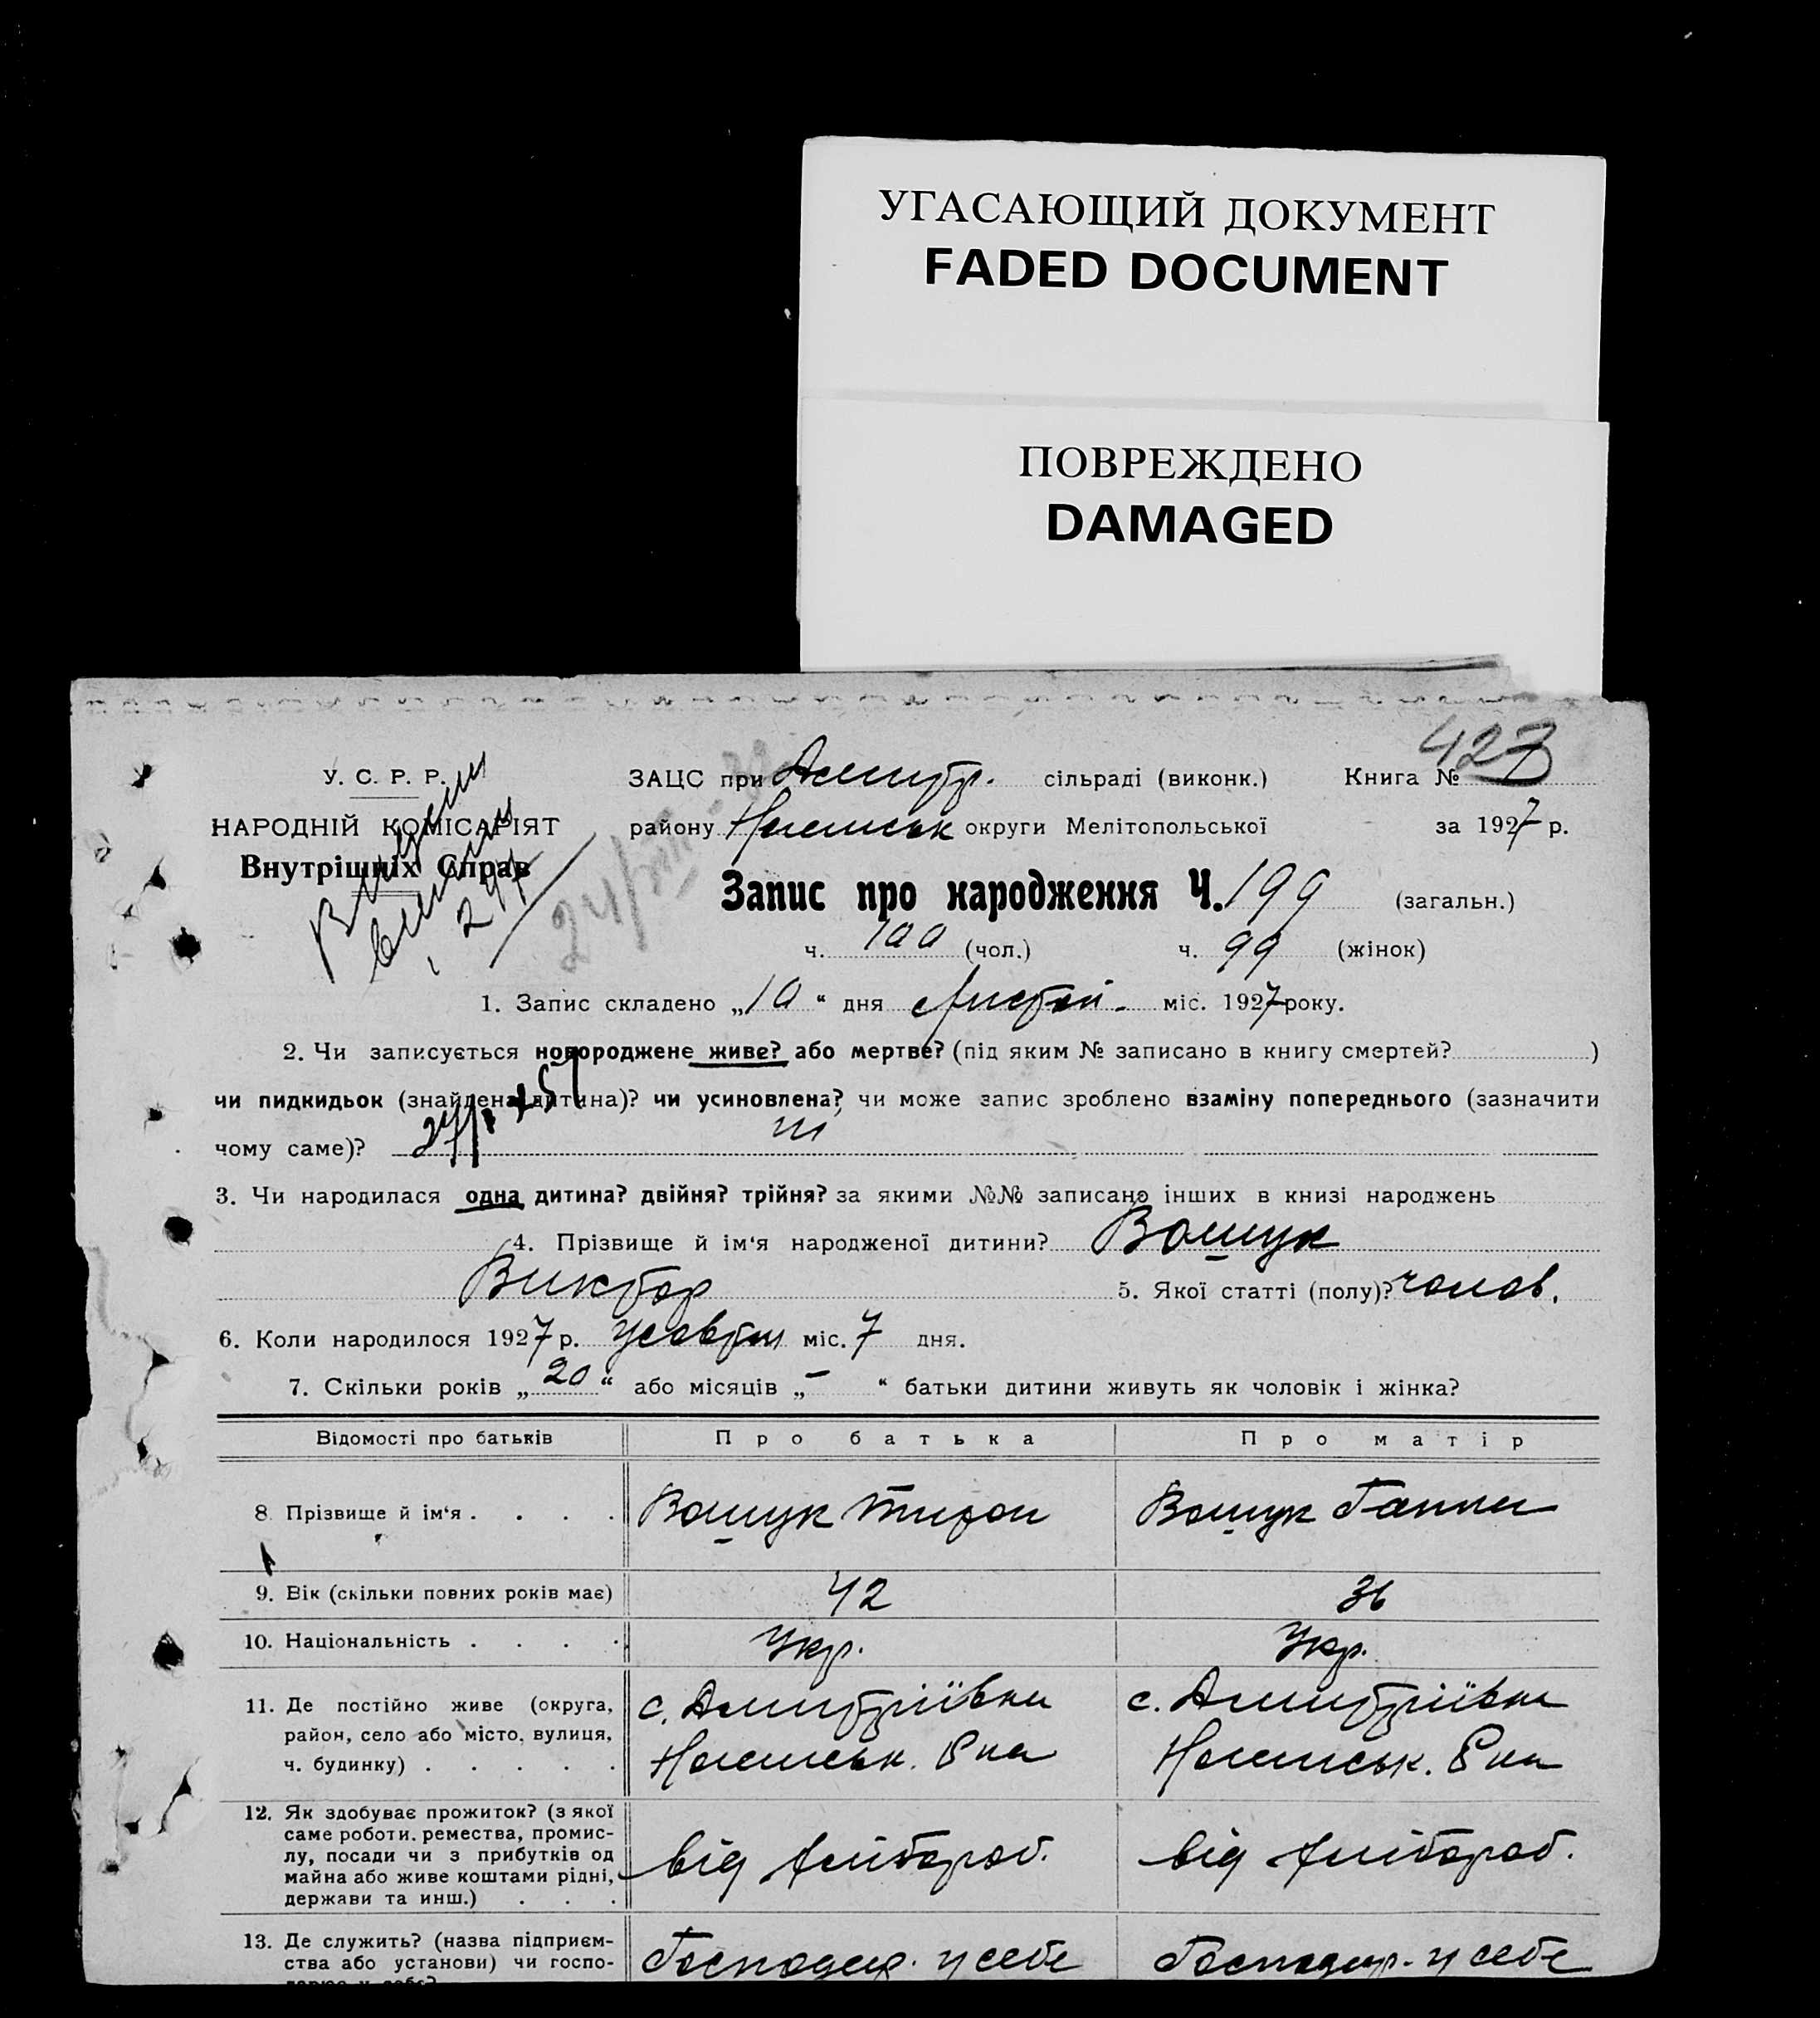 УГАСАЮЩИЙ ДОКУМЕНТ
FADED DOCUMENT
ПОВРЕЖДЕНО
DAMAGED
423
У. С. Р. Р.
НАРОДНІЙ КОМІСАРІЯТ
Внутрішніх Справ
ЗАЦС при Дмитр. сільраді (виконк.) Книга №
району округи Мелітопольської за 1927 р.
Запис про народження Ч. 199 (загальн.)
ч. 100 (чол.) ч. 99 (жінок)
1. Запис складено „10“ дня Листоп. міс. 1927 року.
2. Чи записується новороджене живе? або мертве? (під яким № записано в книгу смертей? )
чи пидкидьок (знайдена дитина)? чи усиновлена? чи може запис зроблено взаміну попереднього (зазначити
чому саме)?
3. Чи народилася одна дитина? двійня? трійня? за якими №№ записано інших в книзі народжень
4. Прізвище й ім‘я народженої дитини? Вощук
Виктор 5. Якої статті (полу)? чолов.
6. Коли народилося 1927 р. жовтня міс. 7 дня.
7. Скільки років „20“ або місяців „–“ батьки дитини живуть як чоловік і жінка?
Відомості про батьків Про батька Про матір
8. Прізвище й ім‘я . . . . Вощук Тихон Вощук Ганна
9. Вік (скільки повних років має) 42 36
10. Національність . . . . Укр. Укр.
11. Де постійно живе (округа, с. Дмитріївка с. Дмитріївка
район, село або місто, вулиця,
ч. будинку) . . . . . Р-на Р-на
12. Як здобуває прожиток? (з якої
саме роботи. ремества, промис-
лу, посади чи з прибутків од
майна або живе коштами рідні, від хлібороб. від хлібороб.
держави та инш.) . . .
13. Де служить? (назва підприєм- Господар. у себе Господар. у себе
ства або установи) чи госпо-